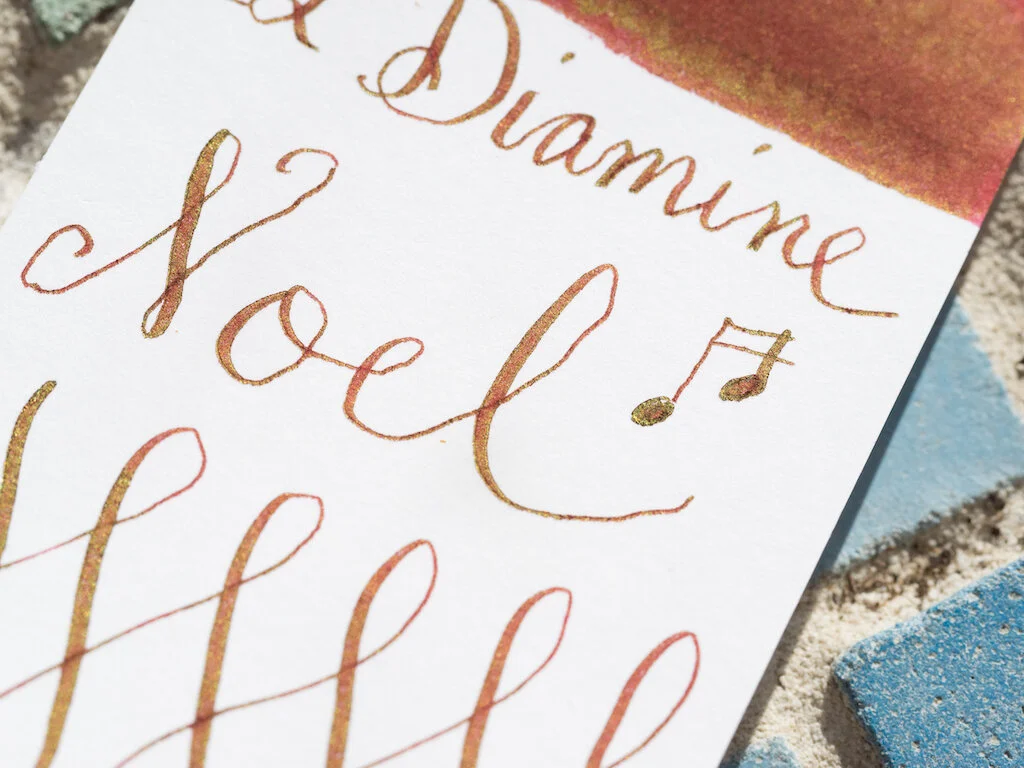 Diamine
Noel